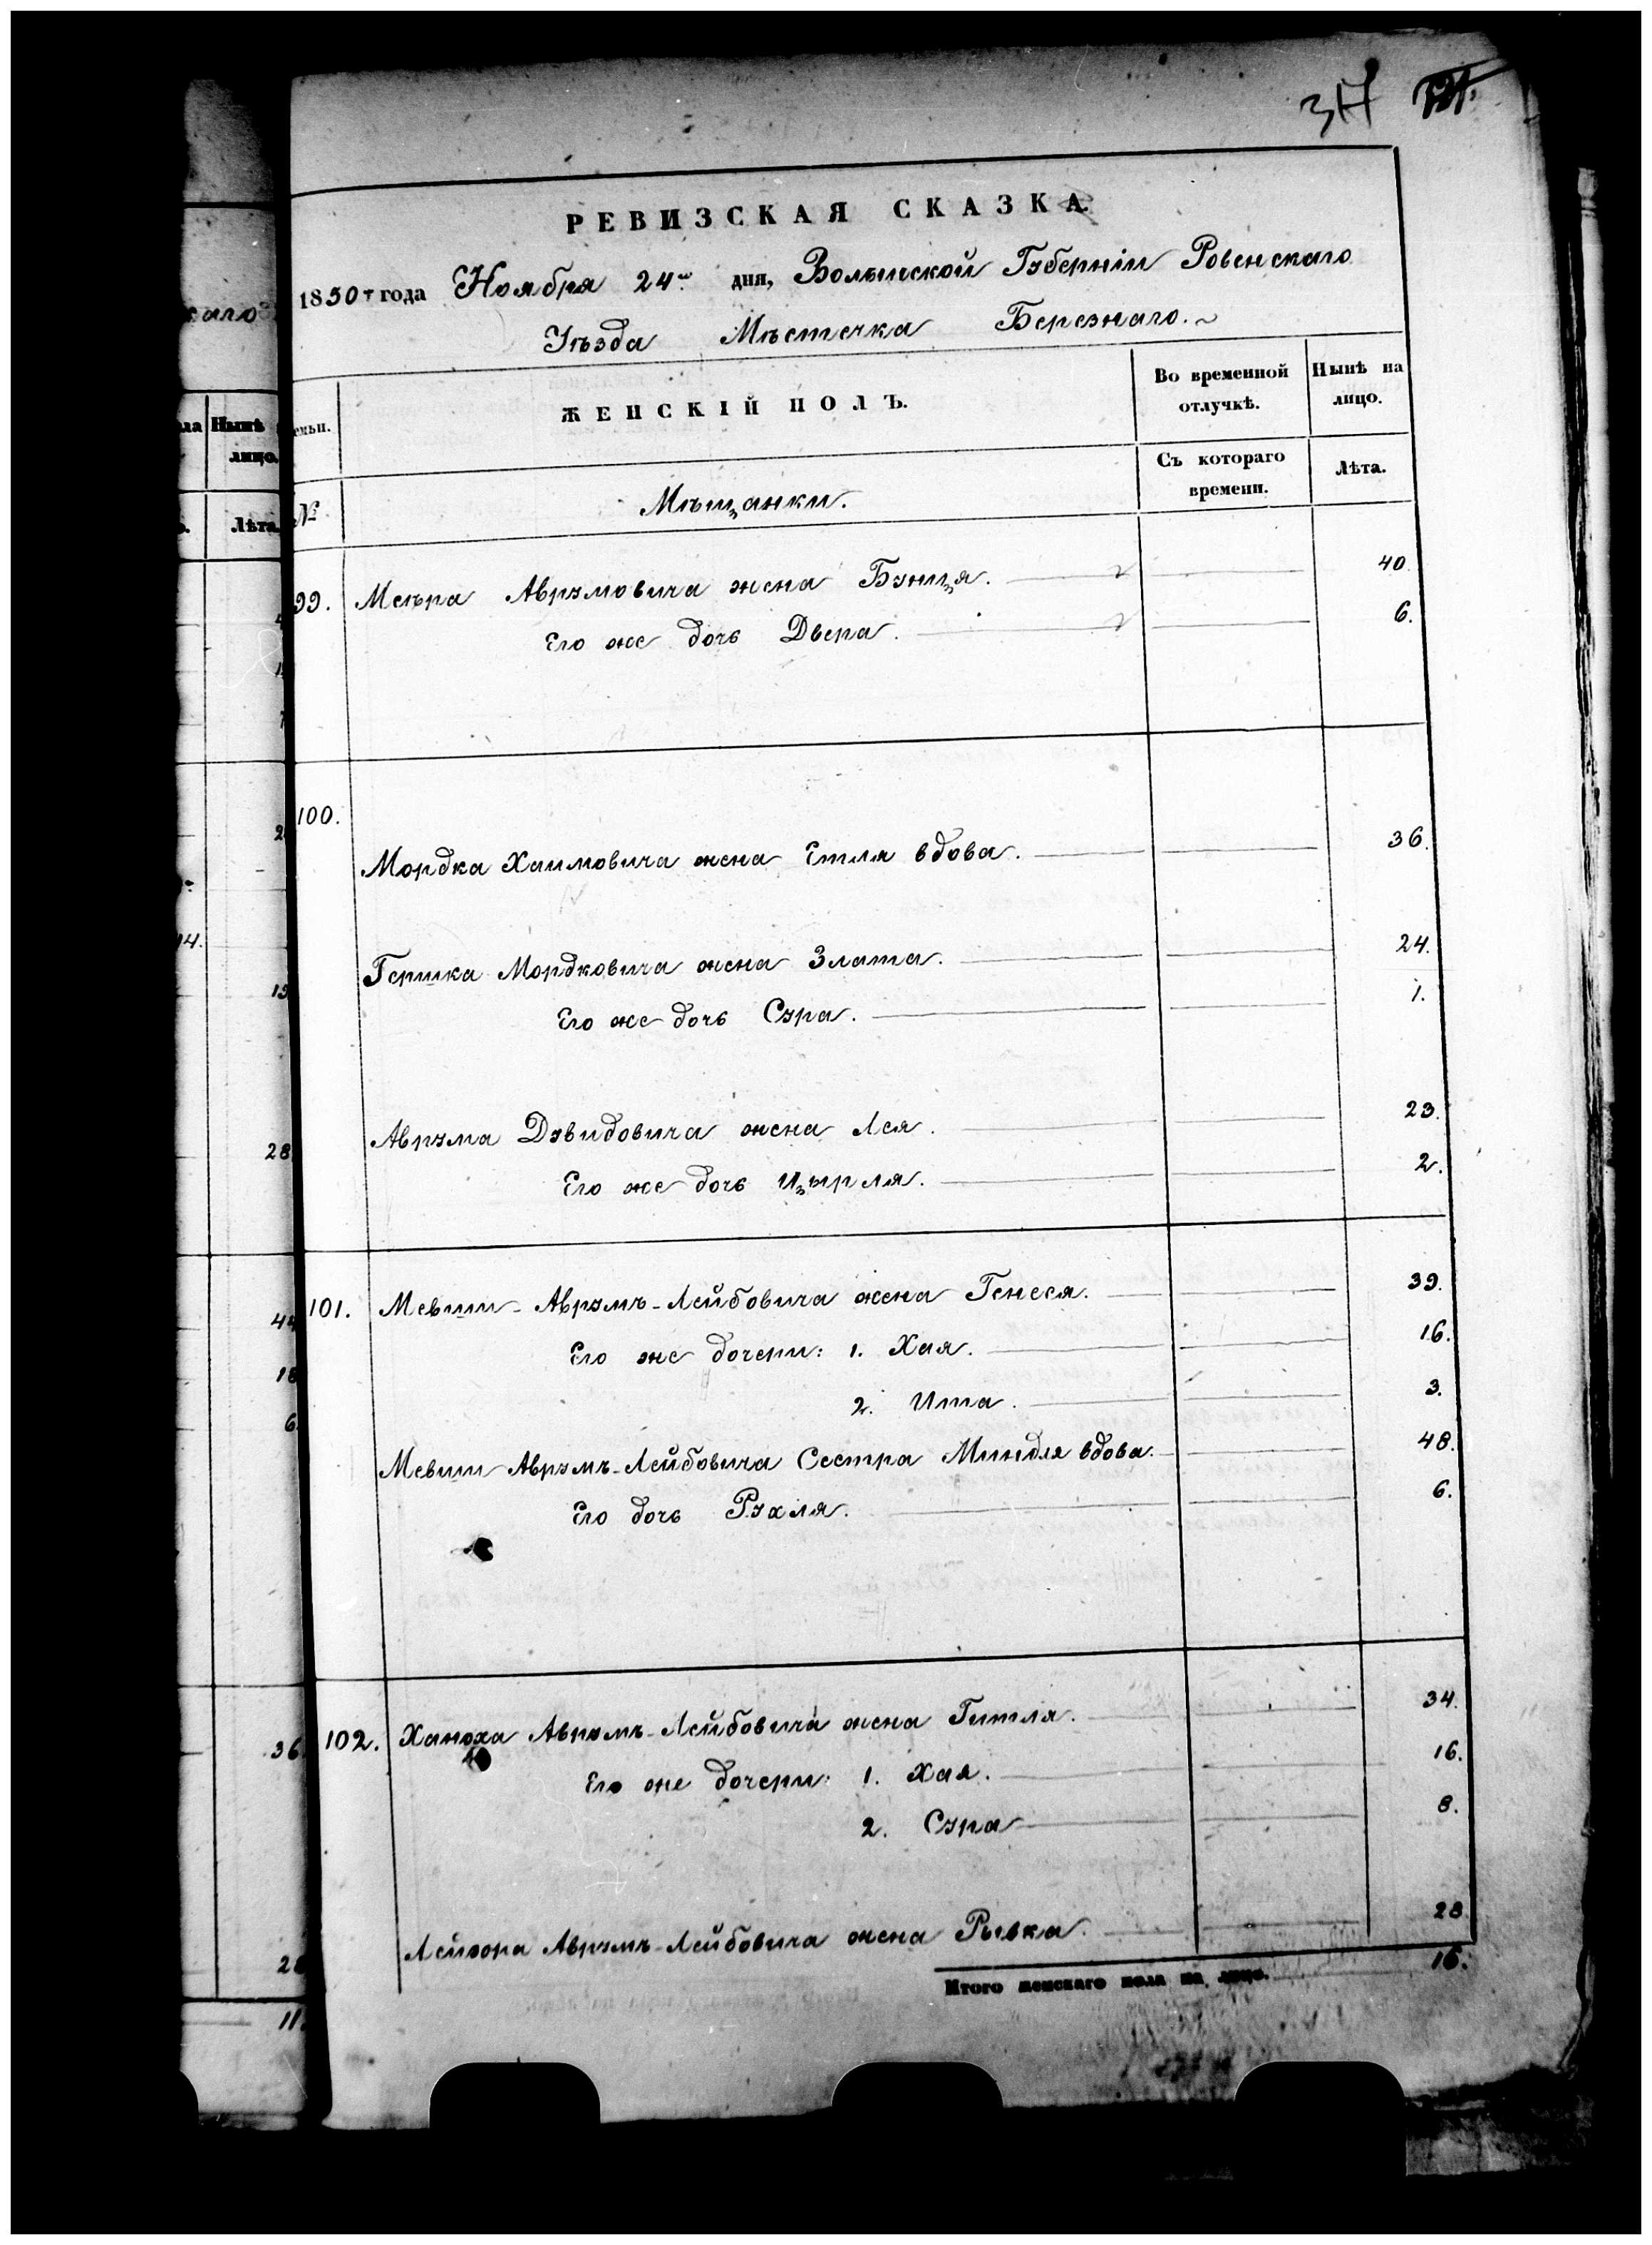 РЕВИЗСКАЯ СКАЗКА.
1850 года Ноября 24 дня, Волынской Губерніи Ровенскаго
Уѣзда Мѣстечка Березнаго.
емьи. ЖЕНСКІЙ ПОЛЪ. Во временной отлучкѣ. Нынѣ на лицо.
№ Мѣщанки. Съ котораго времени. Лѣта.
99. Меѣра Аврумовича жена Бунця. 40.
Его же дочь Двера. 6.
100.
Мордка Хаимовича жена Етля вдова. 36.
Гершка Мордковича жена Злата. 24.
Его же дочь Сура. 1.
Аврума Дувидовича жена Лея. 23.
Его же дочь Цырля. 2.
101. Мевши-Аврумъ-Лейбовича жена Генеся. 39.
Его же дочери: 1. Хая. 16.
2. Ита. 3.
Мевши Аврумъ-Лейбовича Сестра Миндля вдова. 48.
Его дочь Рухля. 6.
102. Ханоха Аврумъ-Лейбовича жена Гитля. 34.
Его же дочери: 1. Хая. 16.
2. Сура 8.
Лейзора Аврумъ-Лейбовича жена Рывка. 28
Итого женскаго пола на лицо. 16.
каго
ла Нынѣ
лицо.
Лѣта.
14.
28
44
18
6
36
28
11